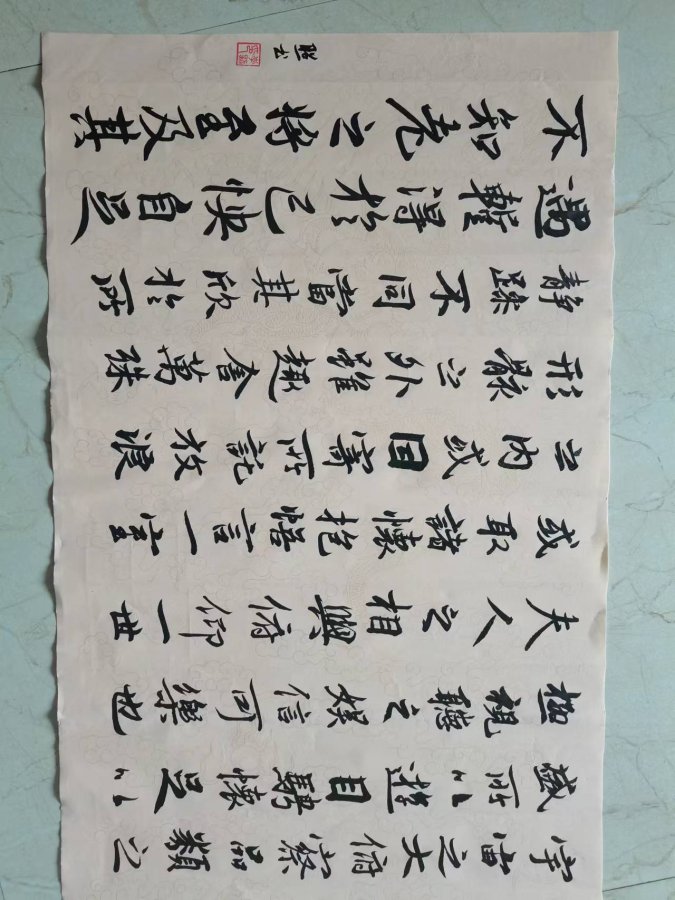 宇宙之大俯察品類之
盛所以遊目騁懷足以
極視聽之娛信可樂也
夫人之相與俯仰一世
或取諸懷抱悟言一室
之内或因寄所託放浪
形骸之外雖趣舍萬殊
靜躁不同當其欣於所
遇暫得於己快自足
不知老之將至及其
书